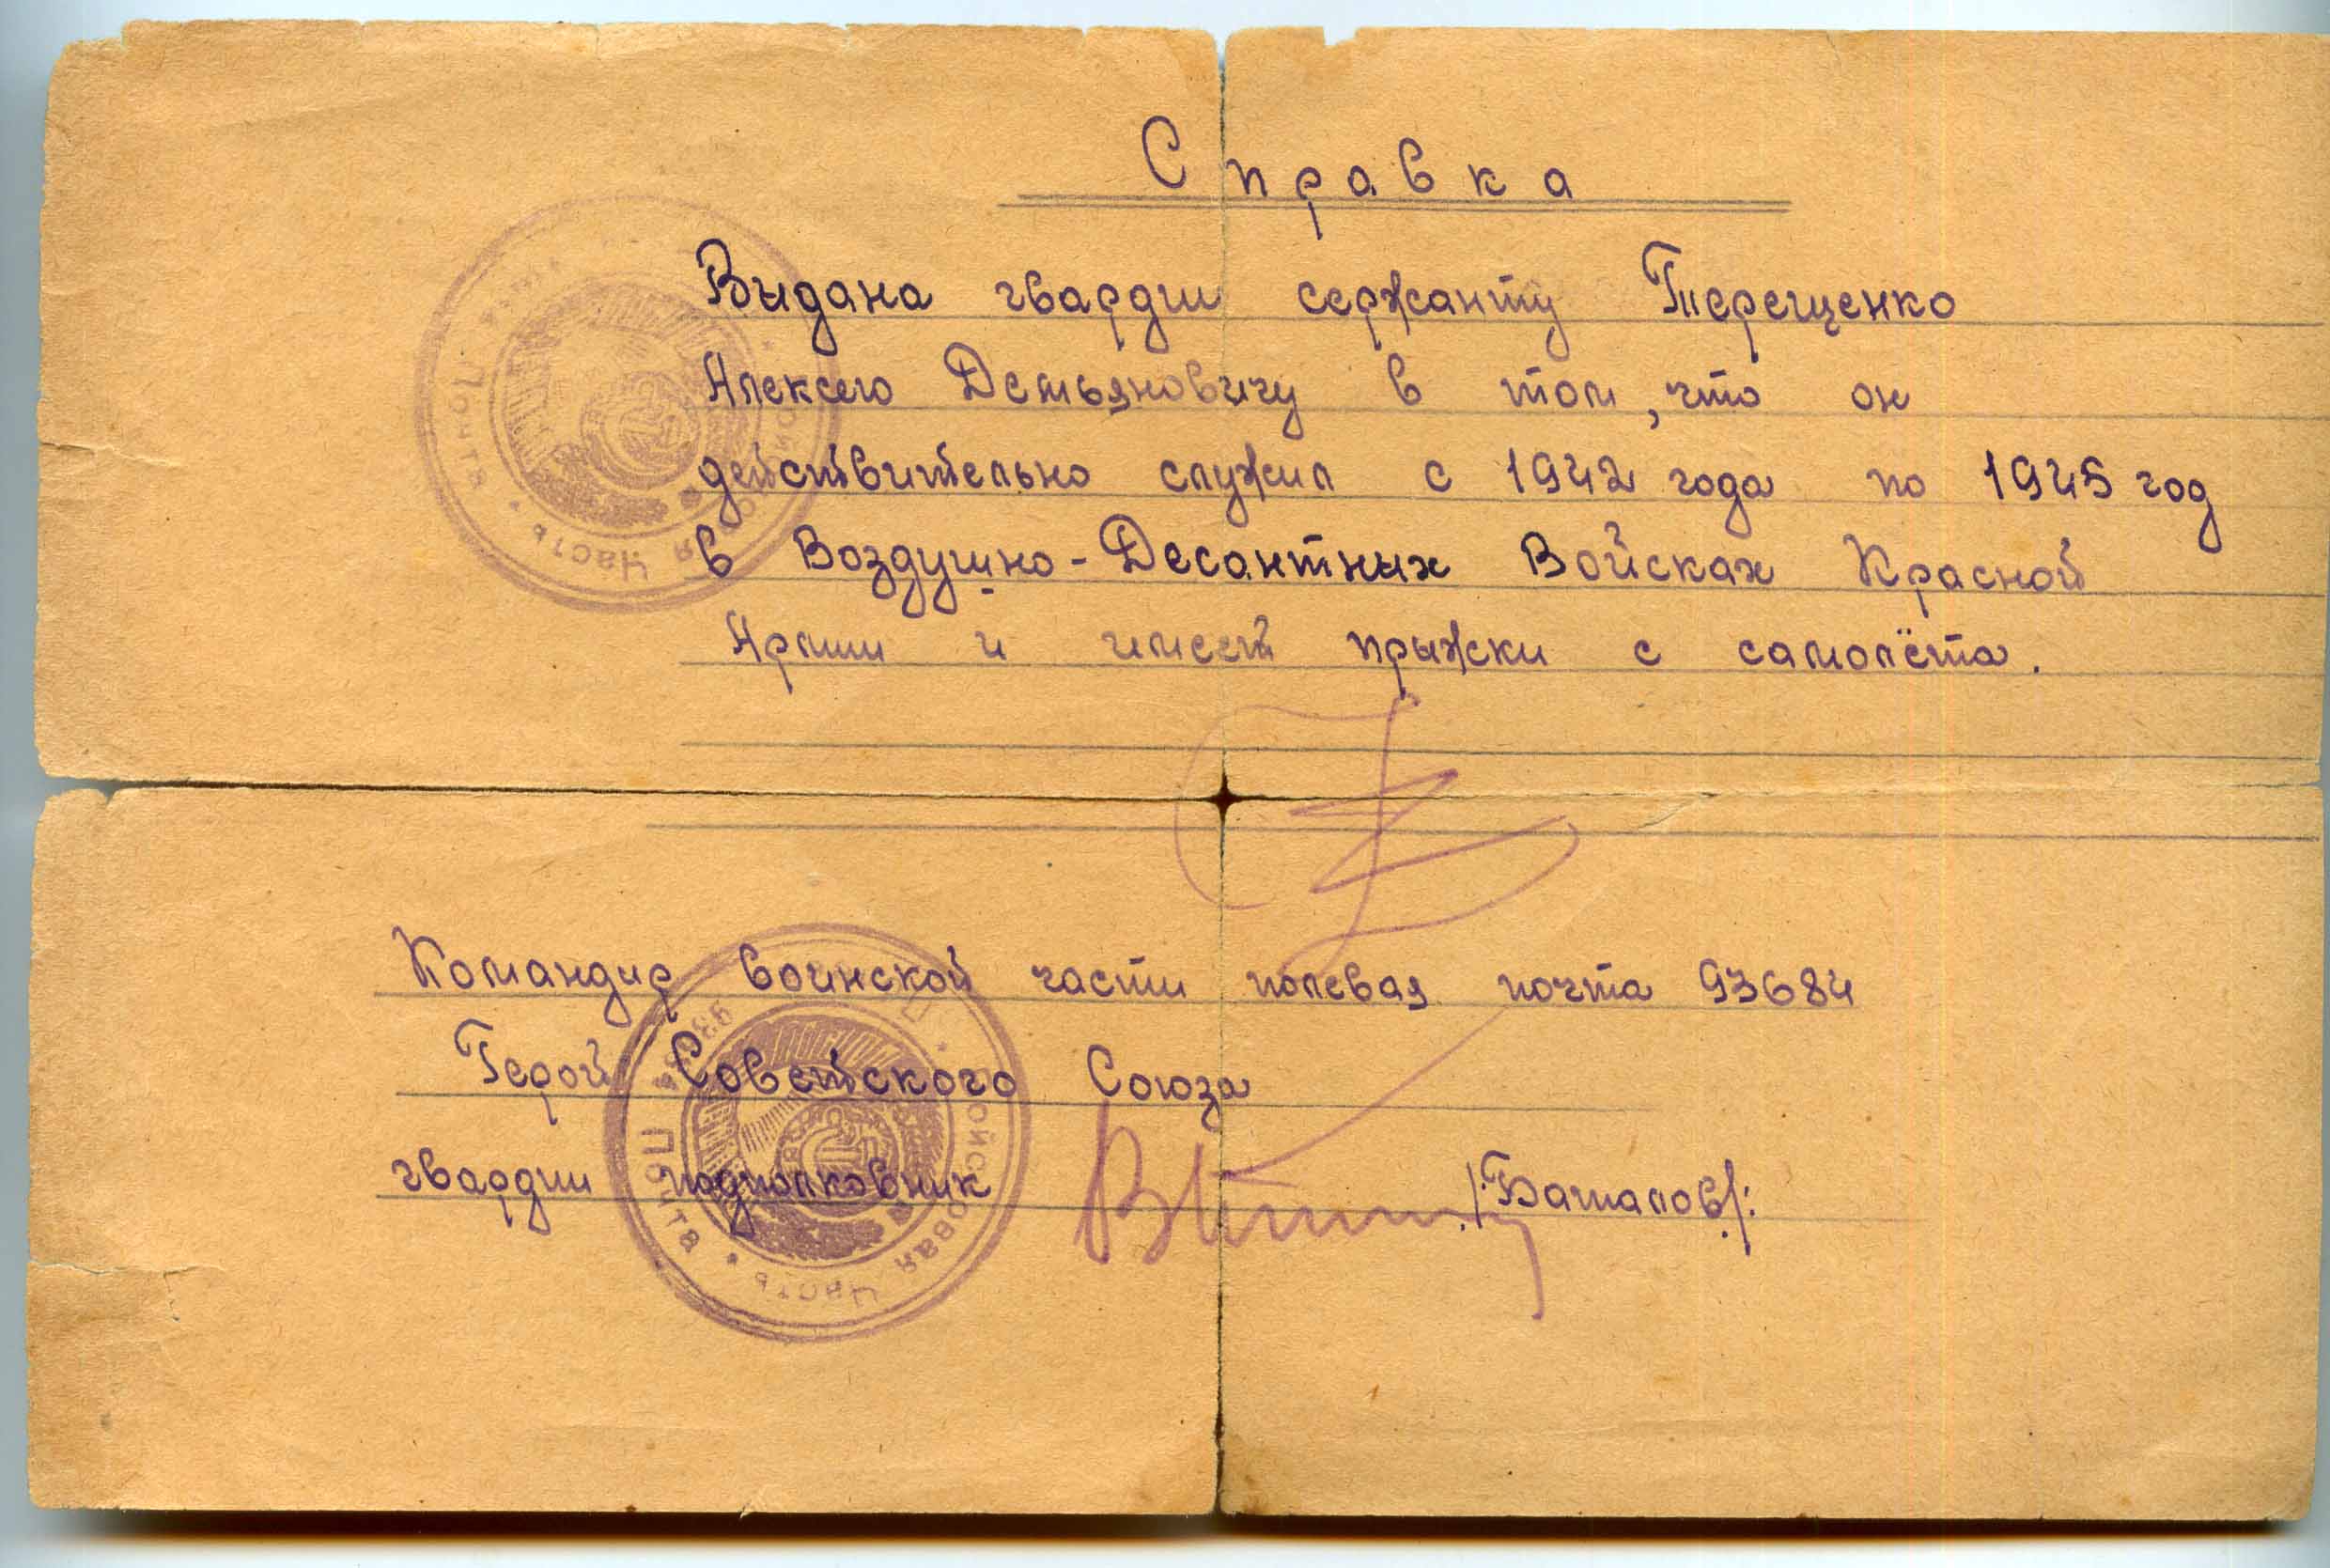 Справка
Выдана гвардии сержанту Терещенко
Алексею Демьяновичу в том, что он
действительно служил с 1942 года по 1945 год
в Воздушно-Десантных Войсках Красной
Армии и имеет прыжки с самолёта.
Командир воинской части полевая почта 93684
Герой Советского Союза
гвардии подполковник /:Баталов/:
Войсковая часть • Почта
Войсковая часть • Почта